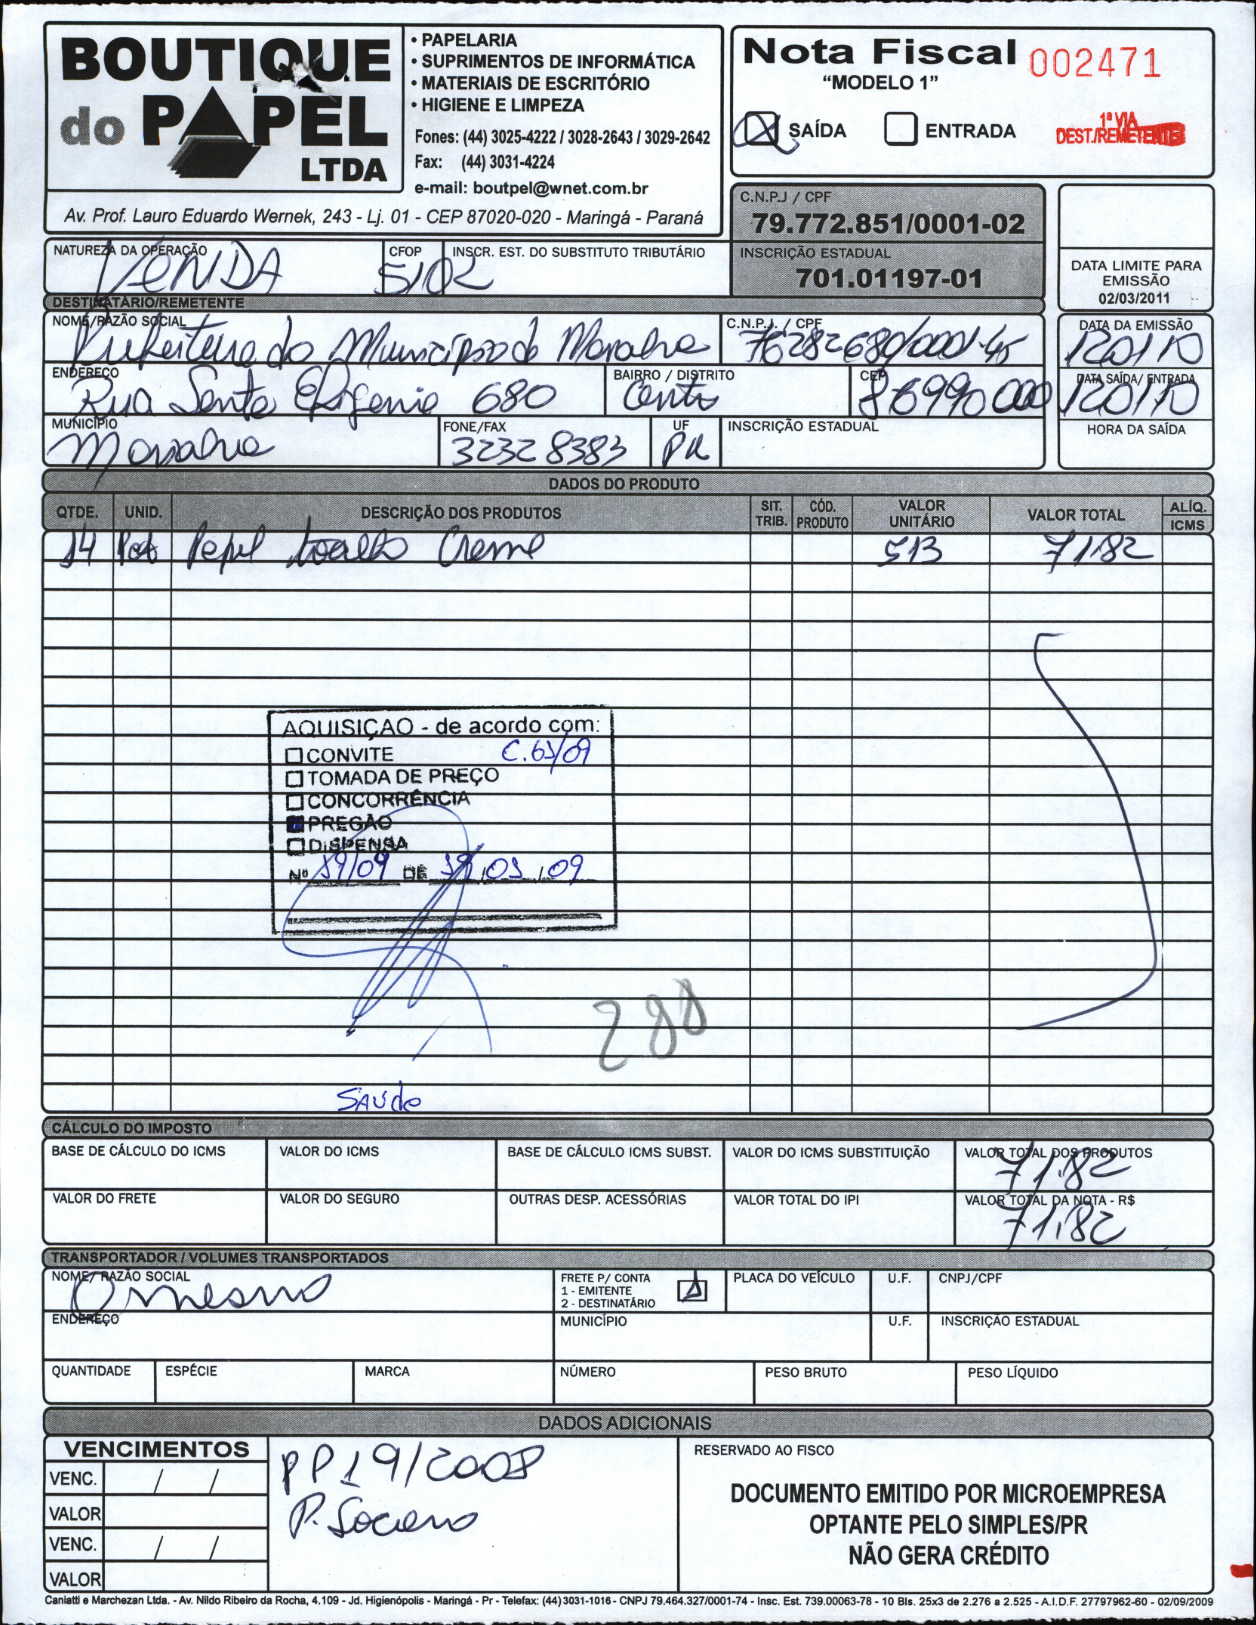 BOUTIQUE
do PAPEL
LTDA
• PAPELARIA
• SUPRIMENTOS DE INFORMÁTICA
• MATERIAIS DE ESCRITÓRIO
• HIGIENE E LIMPEZA
Fones: (44) 3025-4222 / 3028-2643 / 3029-2642
Fax: (44) 3031-4224
e-mail: boutpel@wnet.com.br
Av. Prof. Lauro Eduardo Wernek, 243 - Lj. 01 - CEP 87020-020 - Maringá - Paraná
Nota Fiscal 002471
“MODELO 1”
SAÍDA ENTRADA
1ª VIA
DEST./REMETENTE
C.N.P.J / CPF
79.772.851/0001-02
INSCRIÇÃO ESTADUAL
701.01197-01
DATA LIMITE PARA
EMISSÃO
02/03/2011
NATUREZA DA OPERAÇÃO CFOP INSCR. EST. DO SUBSTITUTO TRIBUTÁRIO
VENDA 5102
DESTINATÁRIO/REMETENTE
NOME/RAZÃO SOCIAL C.N.P.J. / CPF DATA DA EMISSÃO
Prefeitura do Município de 76282680/0001-45 120110
ENDEREÇO BAIRRO / DISTRITO CEP DATA SAÍDA/ ENTRADA
Rua Santa Efigenia 680 Centro 86990000 120110
MUNICÍPIO FONE/FAX UF INSCRIÇÃO ESTADUAL HORA DA SAÍDA
3232 8383 PR
DADOS DO PRODUTO
QTDE. UNID. DESCRIÇÃO DOS PRODUTOS SIT. TRIB. CÓD. PRODUTO VALOR UNITÁRIO VALOR TOTAL ALÍQ. ICMS
14 Pct Papel toalha Creme 513 71.82
AQUISIÇAO - de acordo com:
CONVITE C.61/09
TOMADA DE PREÇO
CONCORRÊNCIA
PREGÃO
DISPENSA
Nº 19/09 DE / 09
288
Saúde
CÁLCULO DO IMPOSTO
BASE DE CÁLCULO DO ICMS VALOR DO ICMS BASE DE CÁLCULO ICMS SUBST. VALOR DO ICMS SUBSTITUIÇÃO VALOR TOTAL DOS PRODUTOS
71.82
VALOR DO FRETE VALOR DO SEGURO OUTRAS DESP. ACESSÓRIAS VALOR TOTAL DO IPI VALOR TOTAL DA NOTA - R$
71.82
TRANSPORTADOR / VOLUMES TRANSPORTADOS
NOME/ RAZÃO SOCIAL FRETE P/ CONTA PLACA DO VEÍCULO U.F. CNPJ/CPF
O mesmo 1 - EMITENTE 1
2 - DESTINATÁRIO
ENDEREÇO MUNICÍPIO U.F. INSCRIÇÃO ESTADUAL
QUANTIDADE ESPÉCIE MARCA NÚMERO PESO BRUTO PESO LÍQUIDO
DADOS ADICIONAIS
VENCIMENTOS
VENC. / /
VALOR
VENC. / /
VALOR
PP 19/2008
RESERVADO AO FISCO
DOCUMENTO EMITIDO POR MICROEMPRESA
OPTANTE PELO SIMPLES/PR
NÃO GERA CRÉDITO
Caniatti e Marchezan Ltda. - Av. Nildo Ribeiro da Rocha, 4.109 - Jd. Higienópolis - Maringá - Pr - Telefax: (44) 3031-1016 - CNPJ 79.464.327/0001-74 - Insc. Est. 739.00063-78 - 10 Bls. 25x3 de 2.276 a 2.525 - A.I.D.F. 27797962-60 - 02/09/2009